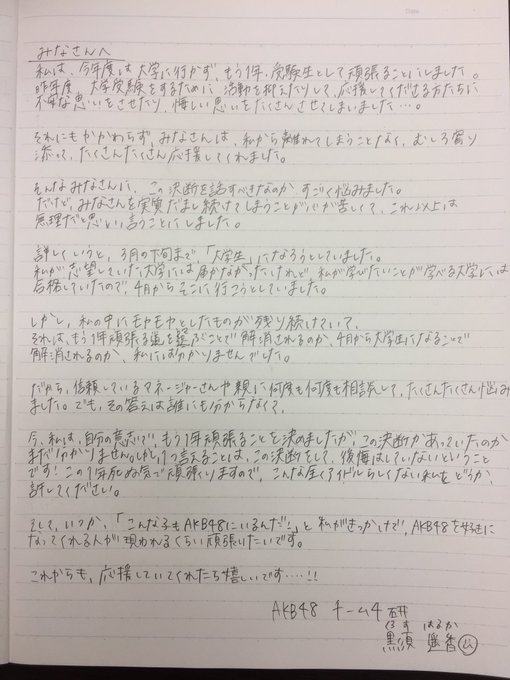 みなさんへ
私は、今年度は大学に行かず、もう1年、受験生として頑張ることにしました。
昨年度、大学受験をするために、活動を抑えたりして、応援してくださる方たちに
不安な思いをさせたり、悔しい思いをたくさんさせてしまいました…。
それにもかかわらず、みなさんは、私から離れてしまうことなく、むしろ寄り
添って、たくさんたくさん応援してくれました。
そんなみなさんに、この決断を話すべきなのか、すごく悩みました。
だけど、みなさんを実質だまし続けてしまうことが心が苦しくて、これ以上は
無理だと思い、言うことにしました。
詳しくいうと、3月の下旬まで、「大学生」になろうとしていました。
私が志望していた大学には届かなかったけれど、私が学びたいことが学べる大学には
合格していたので、4月からそこに行こうとしていました。
しかし、私の中にモヤモヤとしたものが残り続けていて、
それは、もう1年頑張る道を選ぶことで解消されるのか、4月から大学生になることで
解消されるのか、私には分かりませんでした。
だから、信頼しているマネージャーさんや親に何度も何度も相談して、たくさんたくさん悩み
ました。でも、その答えは誰にも分からなくて、
今、私は、自分の意志で、もう1年頑張ることを決めましたが、この決断があっていたのか
まだ分かりません。しかし、1つ言えることは、この決断をして、後悔はしていないということ
です!この1年死ぬ気で頑張りますので、こんな全くアイドルらしくない私をどうか、
許してください。
そして、いつか、「こんな子もAKB48にいるんだ!」と私がきっかけで、AKB48を好きに
なってくれる人が現われるくらい頑張りたいです。
これからも、応援していてくれたら嬉しいです….!!
AKB48 チーム4 研
くろす はるか
黒須 遥香